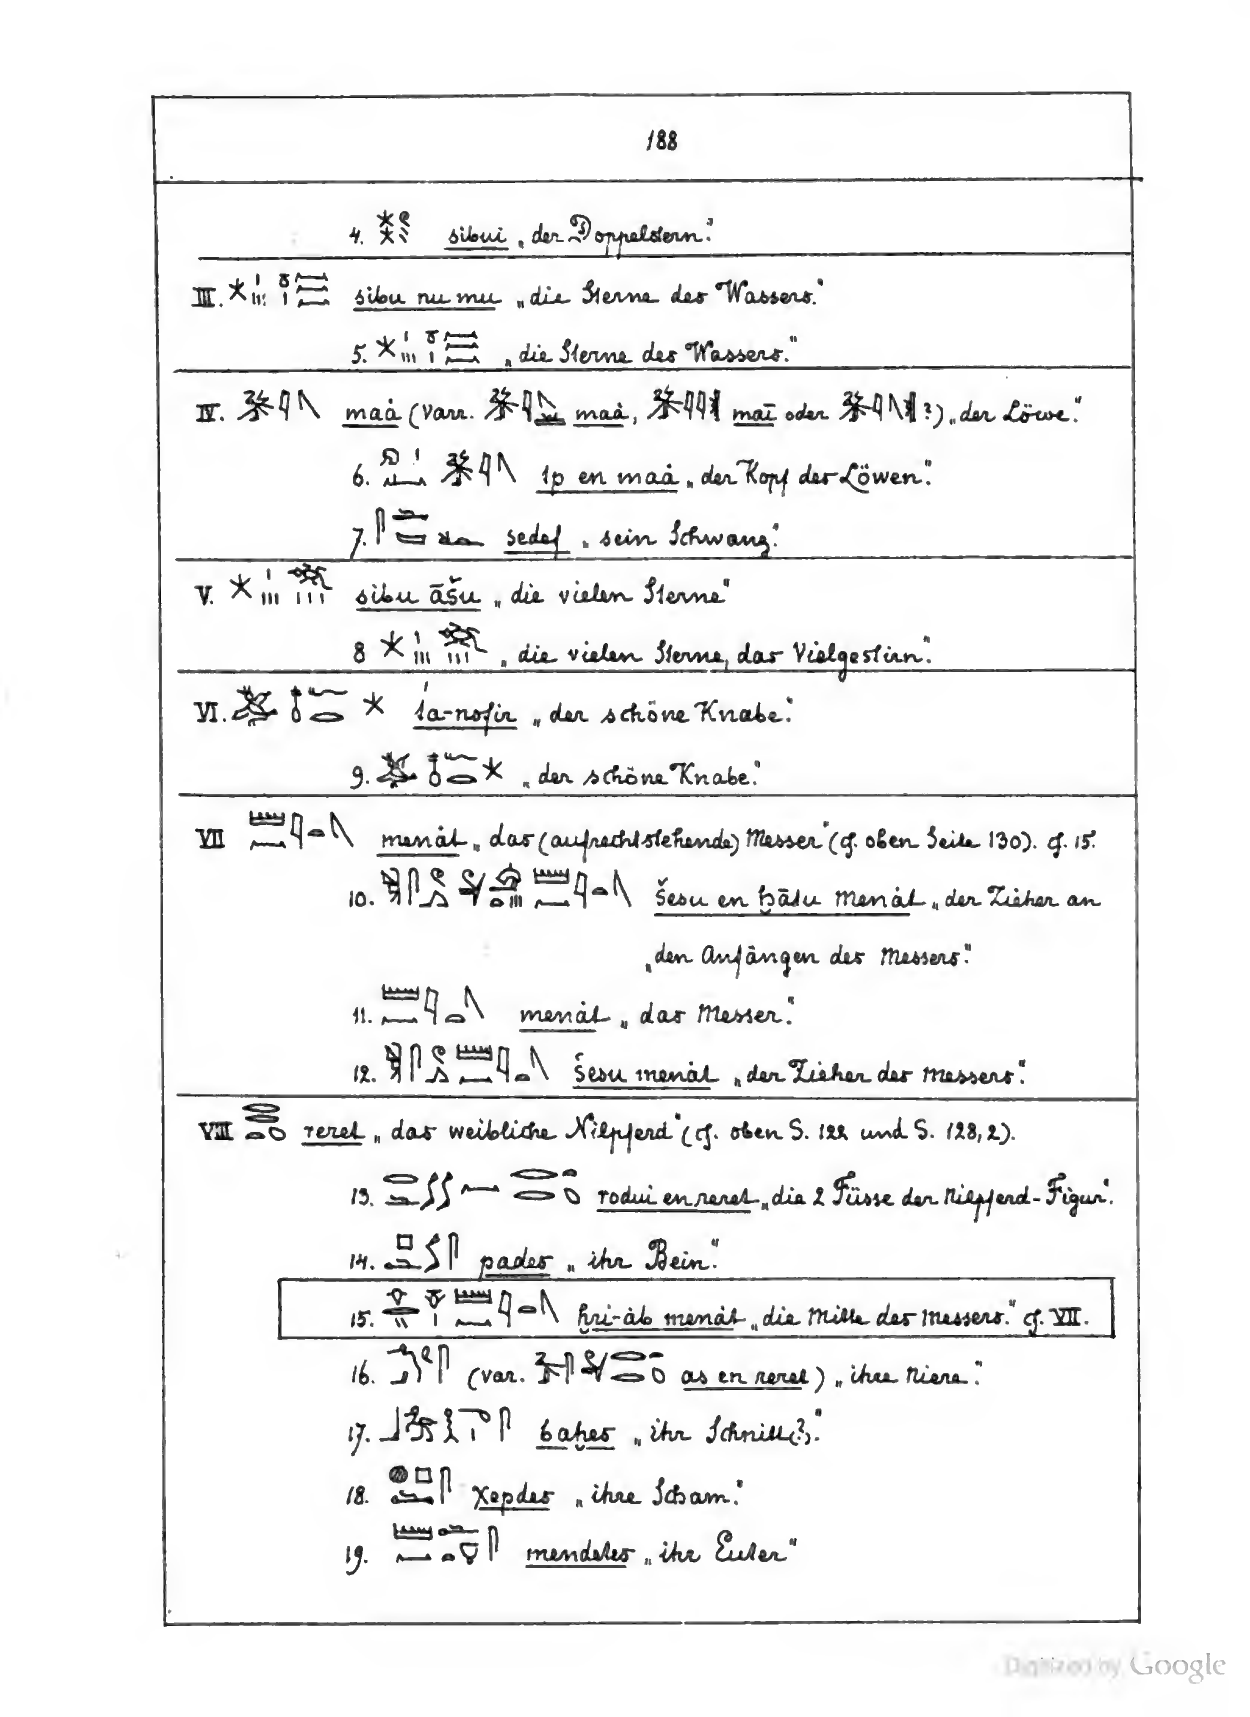 188
4. sibui „der Doppelstern."
III. sibu nu mu „die Sterne des Wassers."
5. „die Sterne des Wassers."
IV. maȧ (Varr. maȧ, maī oder ?) „der Löwe."
6. tp en maȧ „der Kopf des Löwen."
7. sedef „sein Schwanz."
V. sibu āšu „die vielen Sterne"
8 „die vielen Sterne, das Vielgestirn."
VI. ťa-nofir „der schöne Knabe."
9. „der schöne Knabe."
VII menȧt „das (aufrechtstehende) Messer" (cf. oben Seite 130). cf. 15.
10. šesu en ḥātu menȧt „der Zieher an
„den Anfängen des Messers."
11. menȧt „das Messer."
12. šesu menȧt „der Zieher des Messers."
VIII reret „das weibliche Nilpferd" (cf. oben S. 122 und S. 128,2).
13. rodui en reret „die 2 Füsse der Nilpferd-Figur."
14. pades „ihr Bein."
15. ḥri-ȧb menȧt „die Mitte des Messers." cf. VII.
16. (var. as en reret) „ihre Niere."
17. baḥes „ihr Schnitt(?)."
18. χepdes „ihre Scham."
19. mendetes „ihr Euter"
Digitized by Google